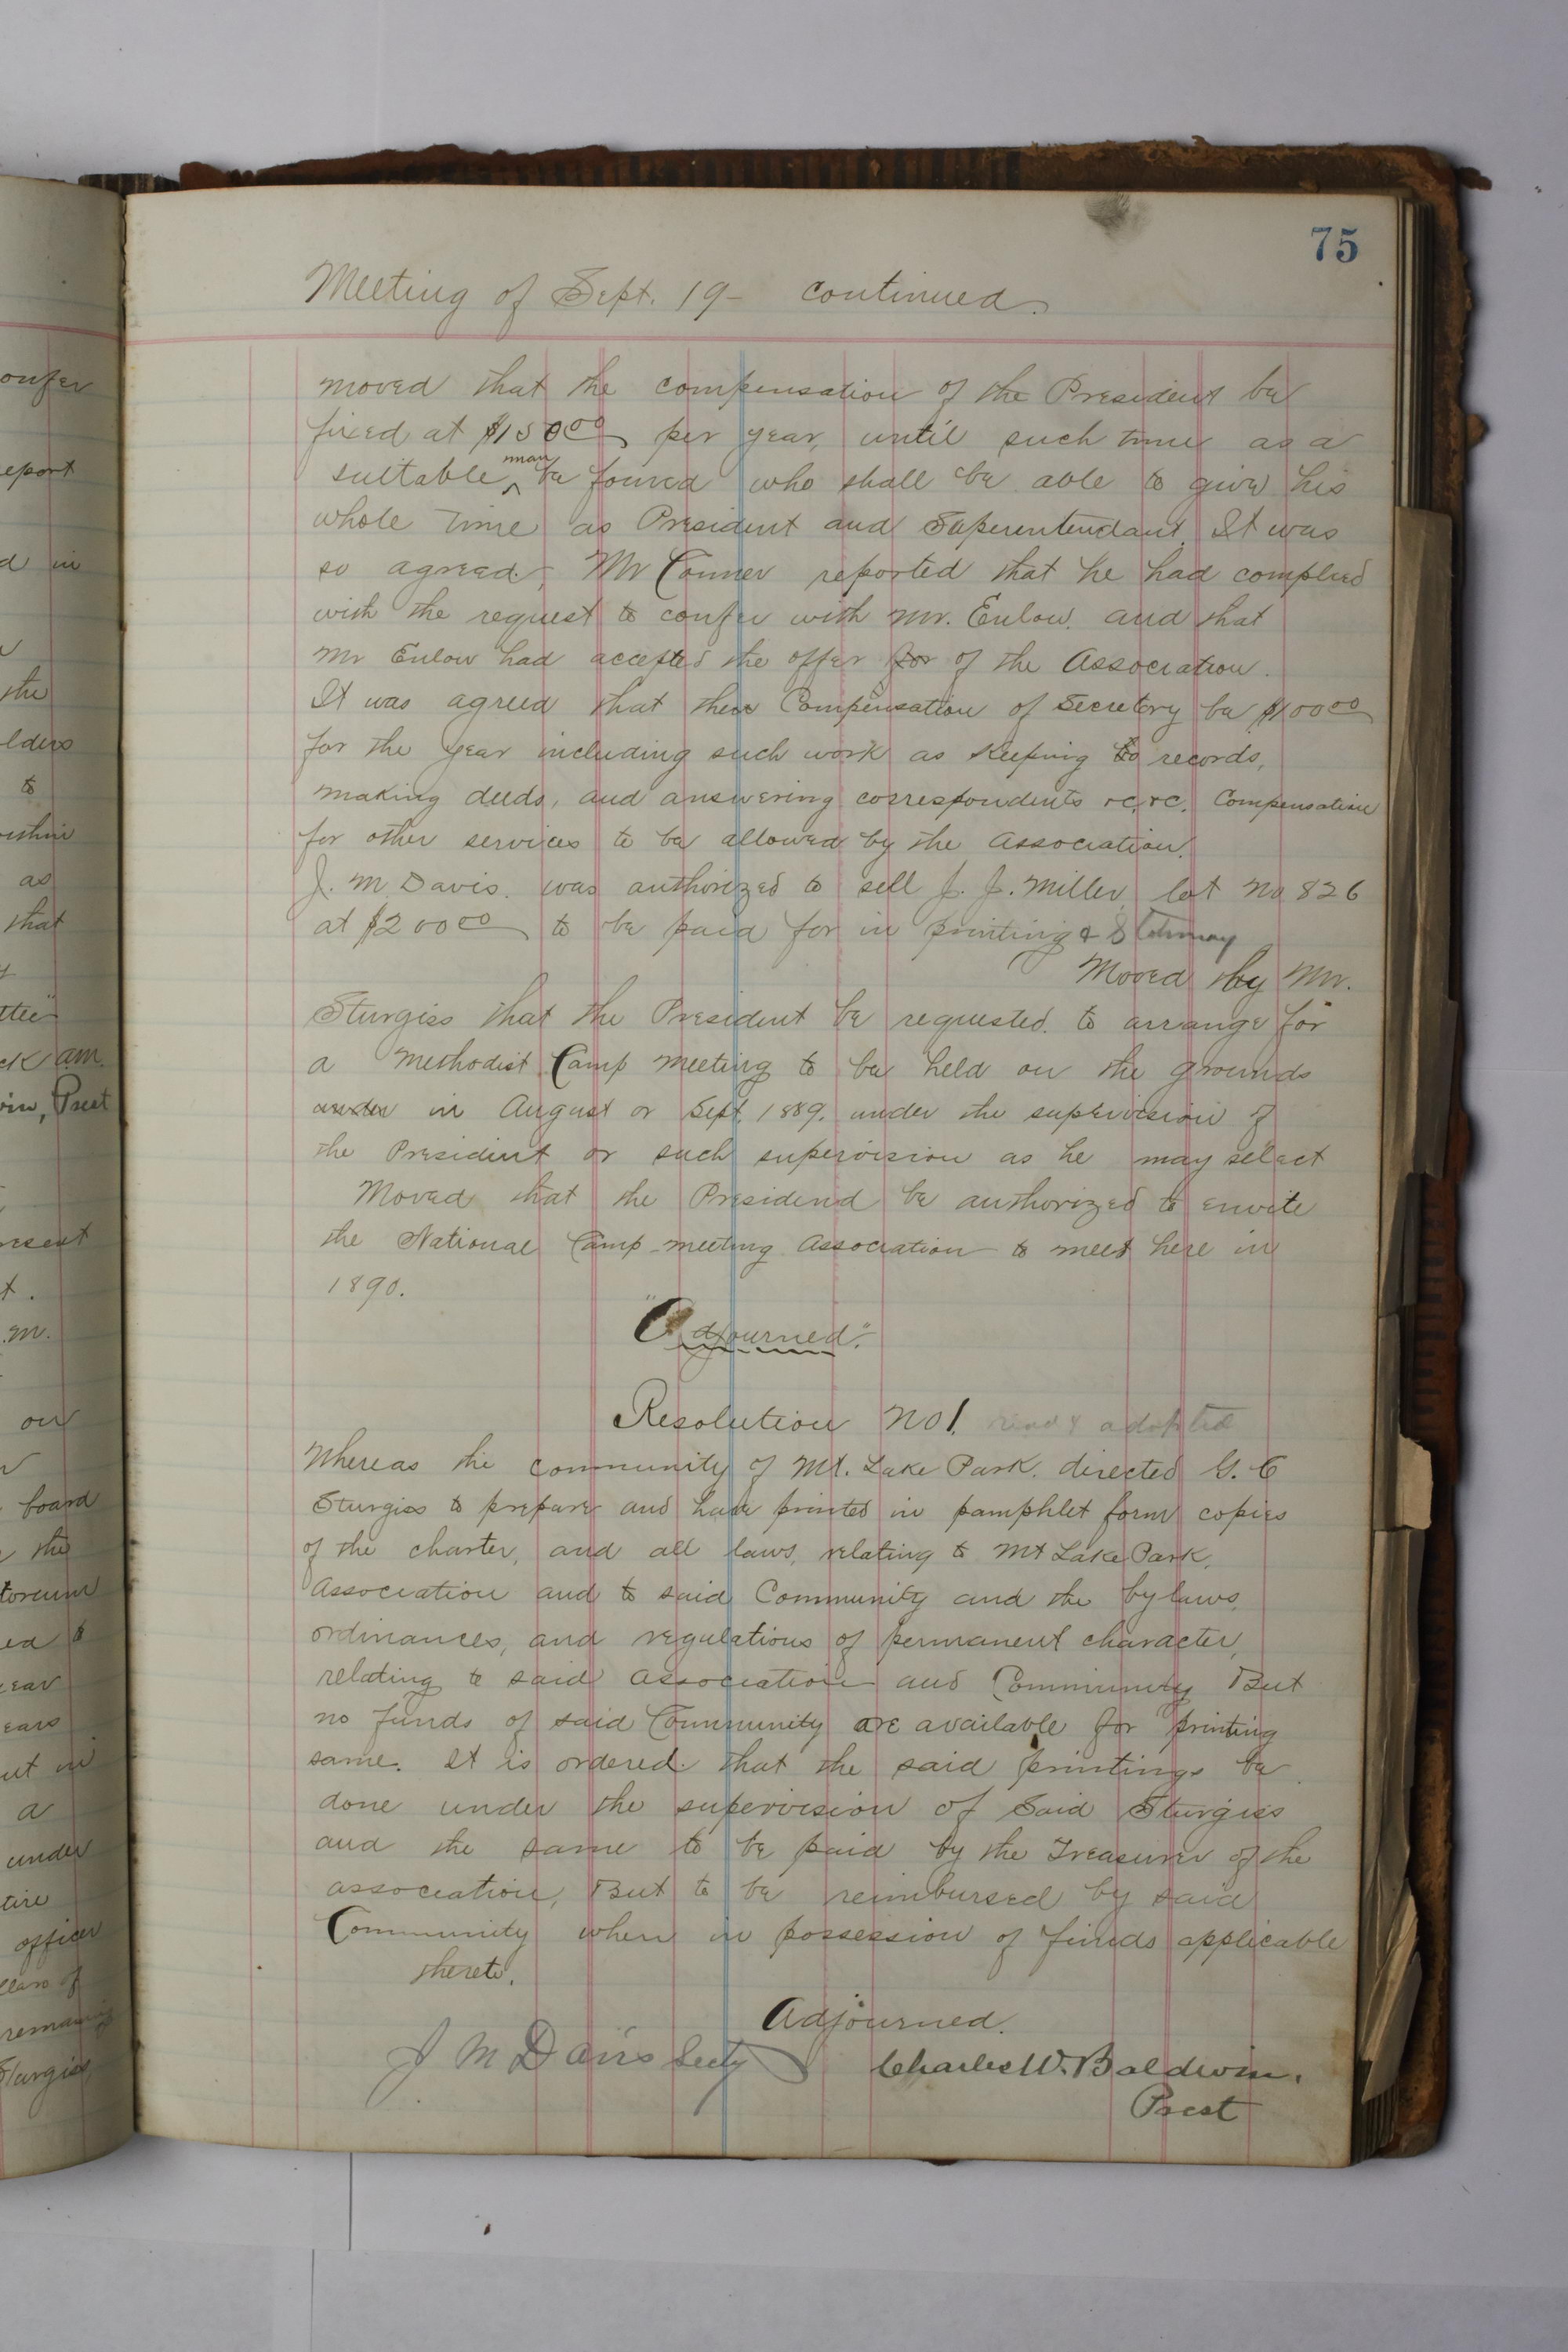 75
Meeting of Sept. 19 - continued.
moved that the compensation of the President be
fixed at $150 00 per year, until such time as a
suitable ^man be found who shall be able to give his
whole time as President and Superentendant. It was
so agreed. Mr Conner reported that he had complied
with the request to confer with Mr. Enlow. and that
Mr Enlow had accepted the offer for of the Association.
It was agreed that the Compensation of Secretary be $100 00
for the year including such work as Keeping to records,
making deeds, and answering correspondents &c, &c. Compensation
for other services to be allowed by the Association.
J. M Davis. was authorized to sell J. J. Miller lot No 826
at $200 00 to be paid for in printing &
Moved by Mr.
Sturgiss that the President be requested to arrange for
a Methodist Camp Meeting to be held on the grounds
under in August or Sept. 1889. under the supervision of
the President or such supervision as he may select
Moved that the Presidend be authorized to envite
the National Camp-meeting Association to meet here in
1890.
"Adjourned."
Resolution No 1. read & adopted
Whereas the community of Mt. Lake Park. directed G. C
Sturgiss to prepare and have printed in pamphlet form copies
of the charter, and all laws, relating to Mt Lake Park,
Association and to said Community and the by laws,
ordinances, and regulations of permanent character,
relating to said association and Community But
no funds of said Community are available for printing
same. It is ordered that the said printings be
done under the supervision of Said Sturgiss
and the same to be paid by the Treasurer of the
association, But to be reimbursed by said
Community when in possession of funds applicable
thereto.
Adjourned.
J M Davis Secty Charles W. Baldwin.
Prest
onfer
eport
d in
the
lders
to
as
that
ck am.
Prest
resent
.m.
on
board
the
ear
a
under
officer
Sturgiss